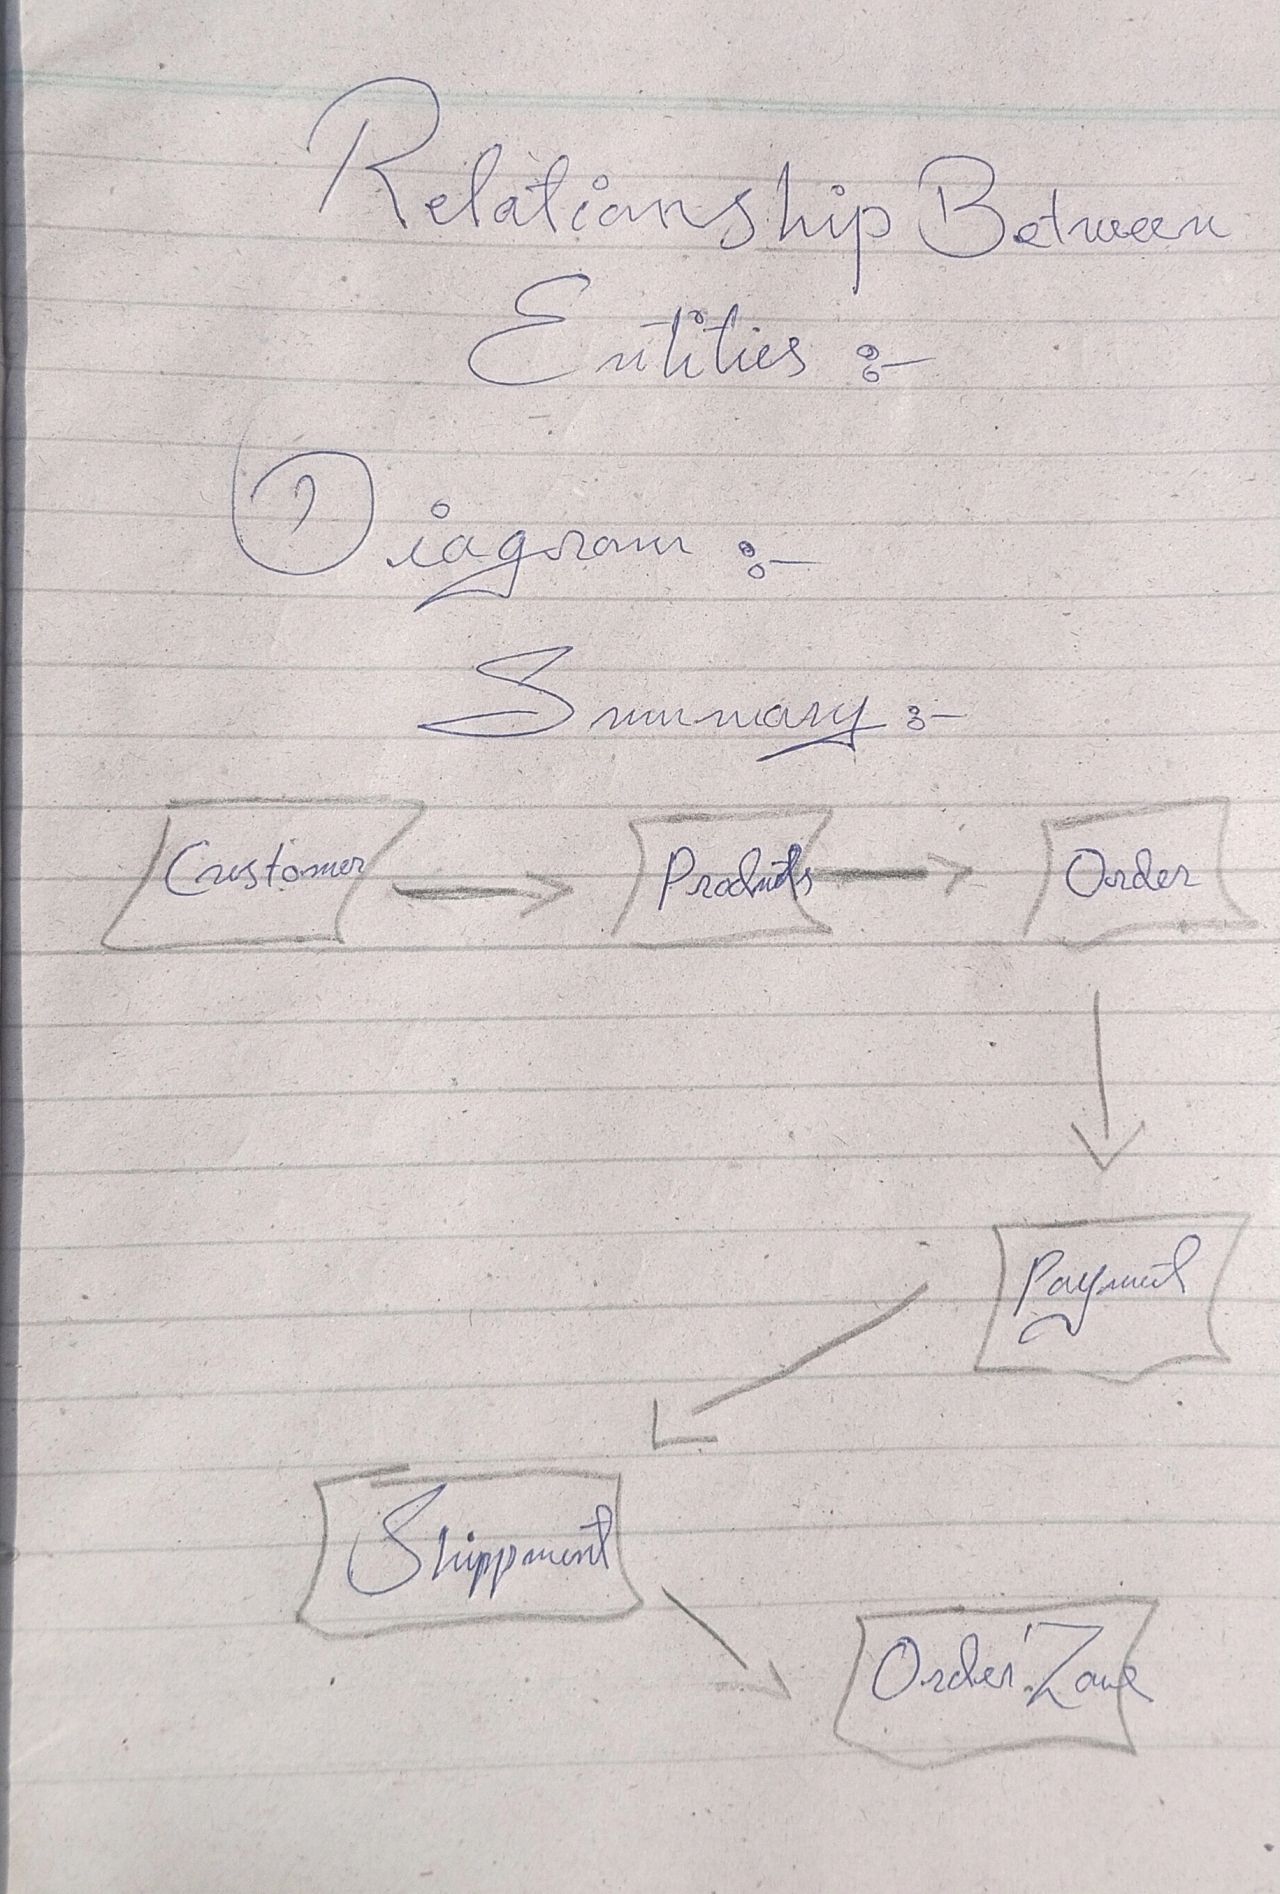 Relationship Between
Entities :-
Diagram :-
Summary :-
Customer Products Order
Payment
Shippment
Order Zone